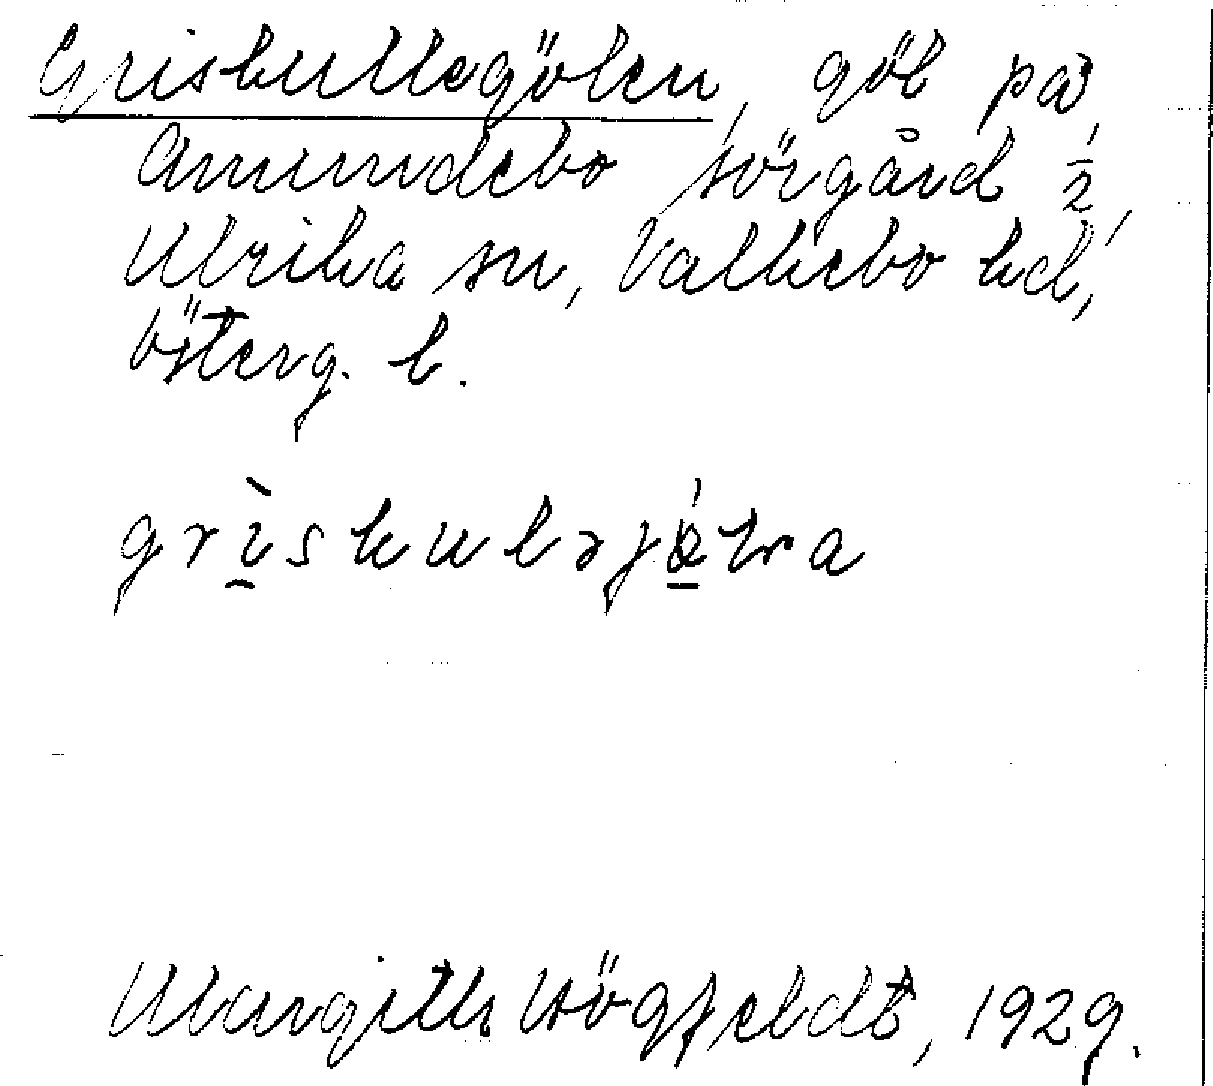 Griskullegölen, göl på
Amundebo sörgård ½,
Ulrika sn, Valkebo hd,
Österg. l.
grìskuləjǿlna
Margith Högfeldt, 1929.